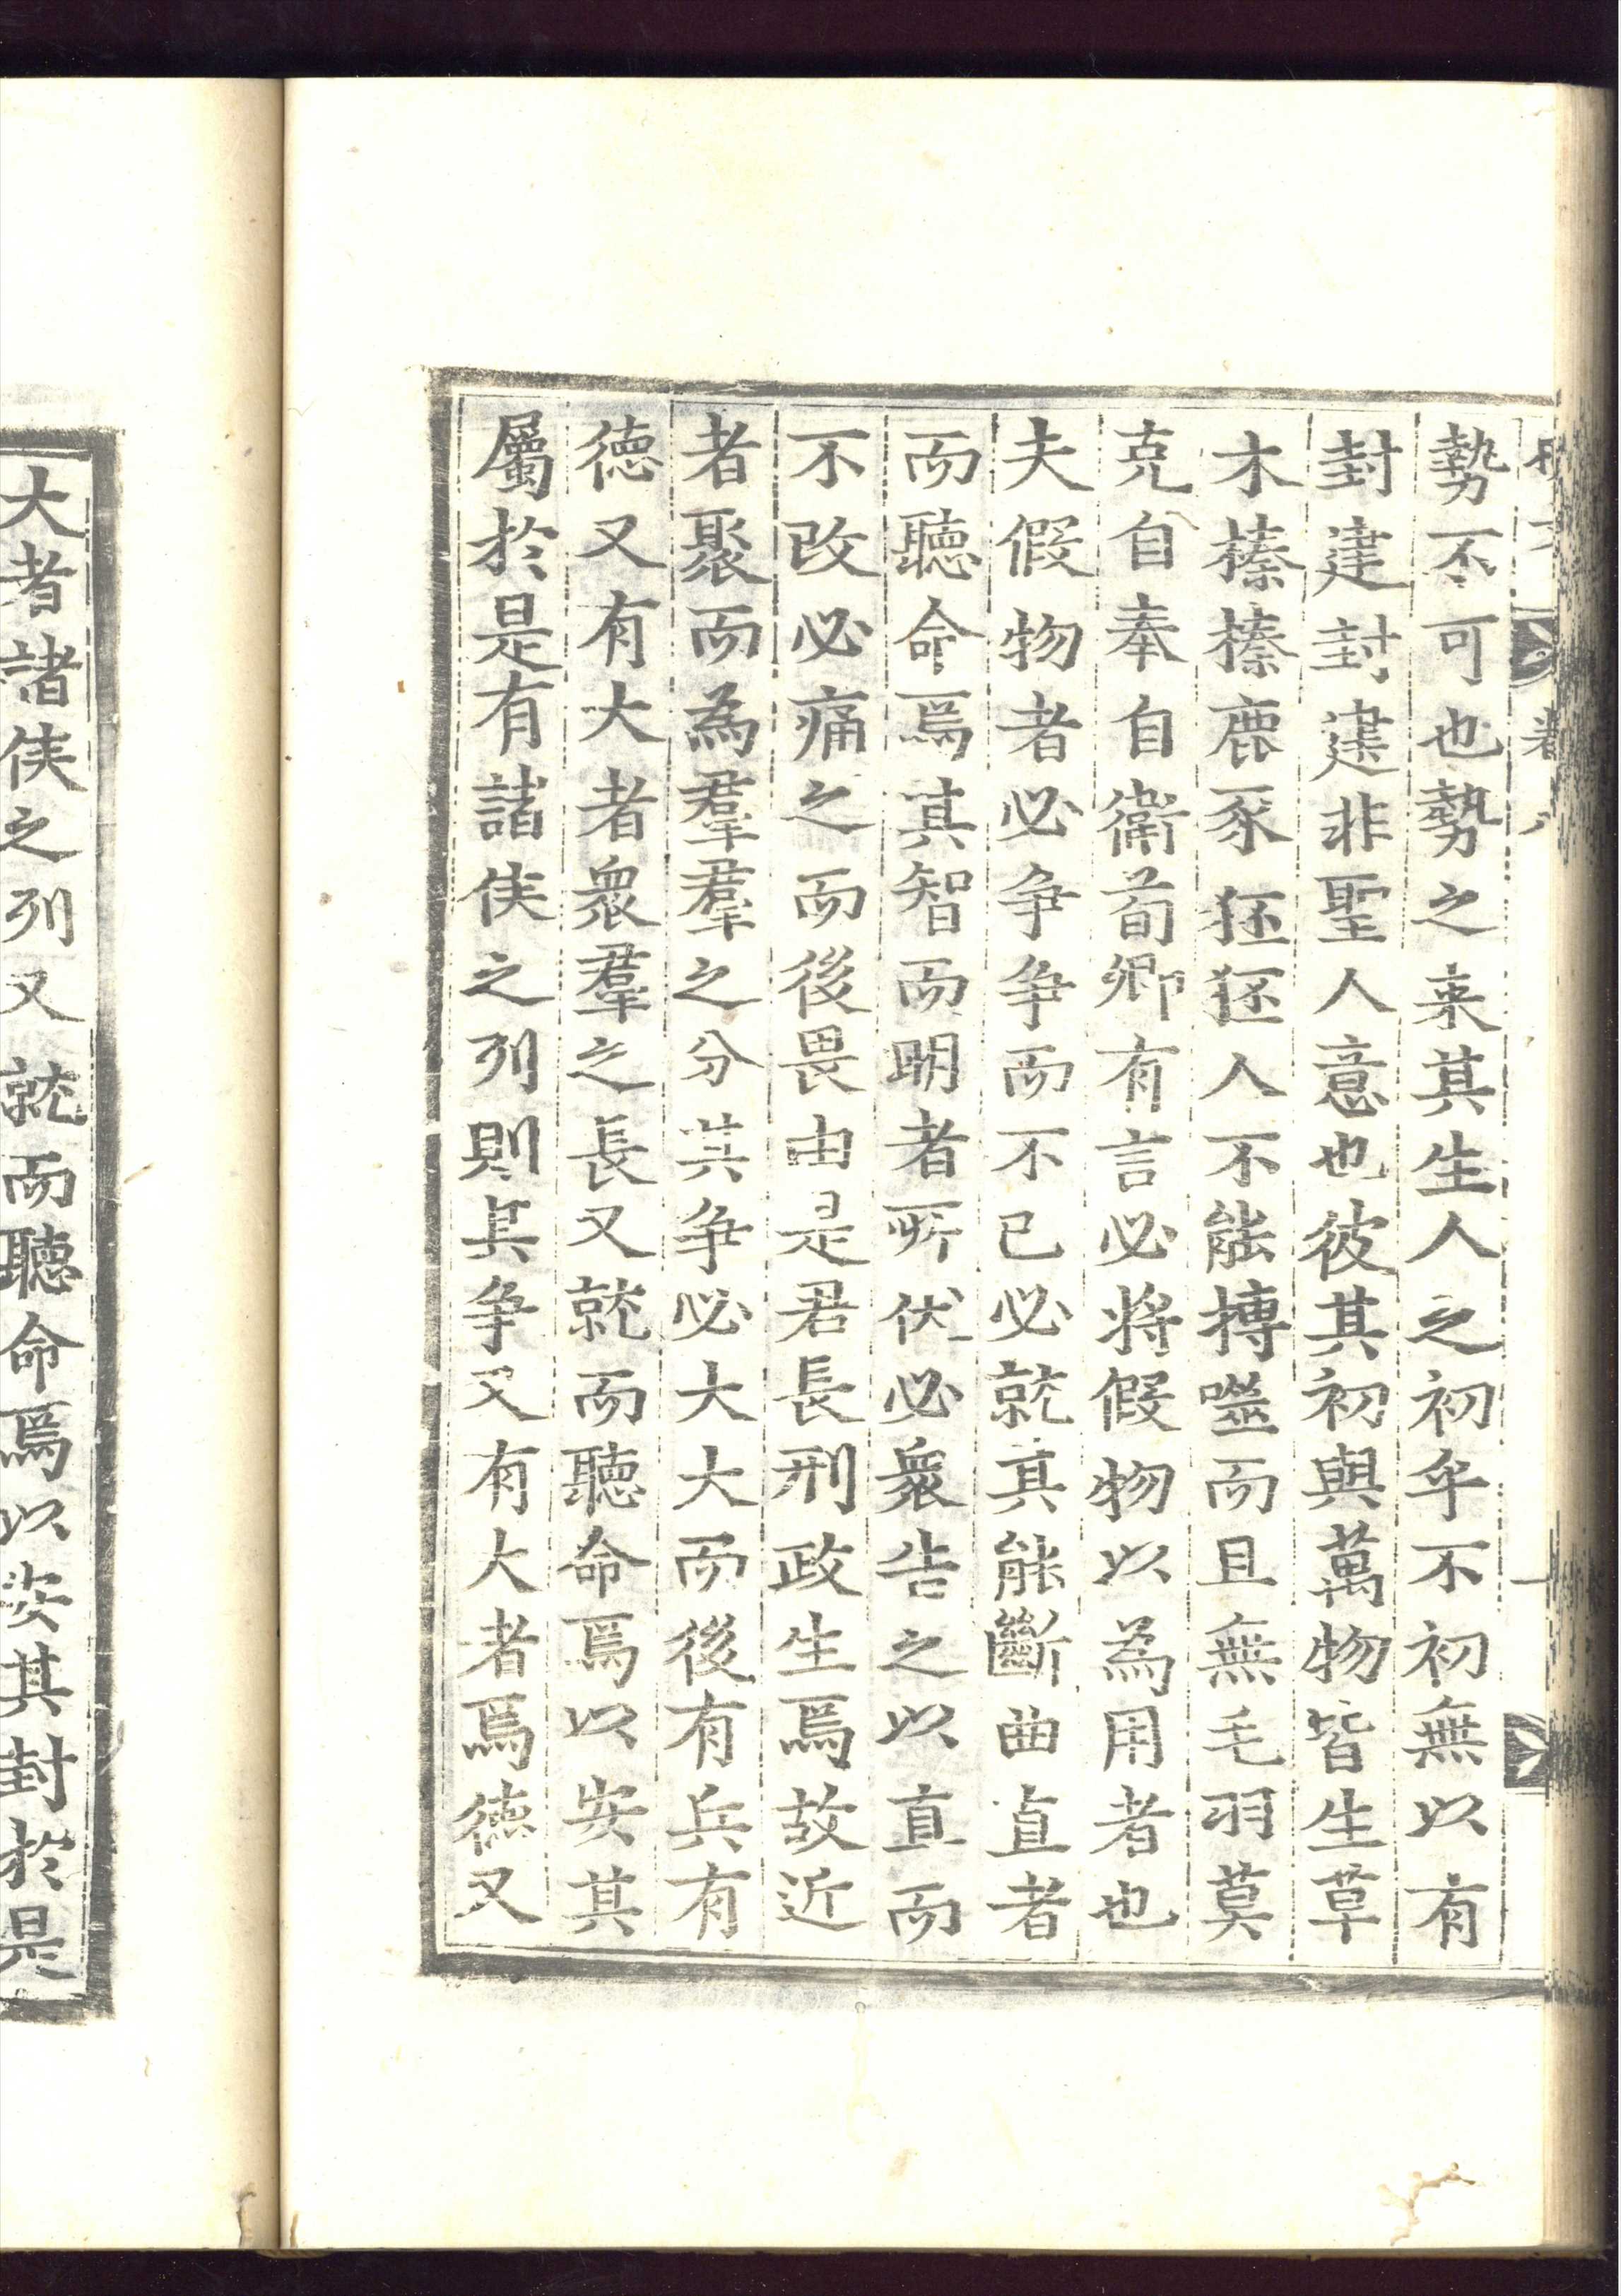 勢不可也勢之来其生人之初乎不初無以有
封建封建非聖人意也彼其初與萬物皆生草
木榛榛鹿豕狉狉人不能搏噬而且無毛羽莫
克自奉自衛荀卿有言必将假物以為用者也
夫假物者必争争而不已必就其能斷曲直者
而聽命焉其智而明者所伏必衆告之以直而
不改必痛之而後畏由是君長刑政生焉故近
者聚而為羣羣之分其争必大大而後有兵有
徳又有大者衆羣之長又就而聽命焉以安其
屬於是有諸侯之列則其争又有大者焉徳又
大者諸侯之列又就而聽命焉以安其封於是